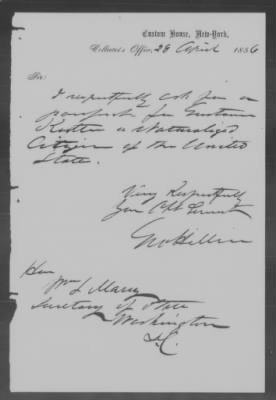 Custom House, New-York,
Collector's Office, 28 April 1856
Sir:
I respectfully ask for a
passport for Gustave
a Naturalized
Citizen of the United
State.
Very Respectfully
Your Obt Servant
Hon
Wm L Marcy
Secretary of State
Washington
D.C.